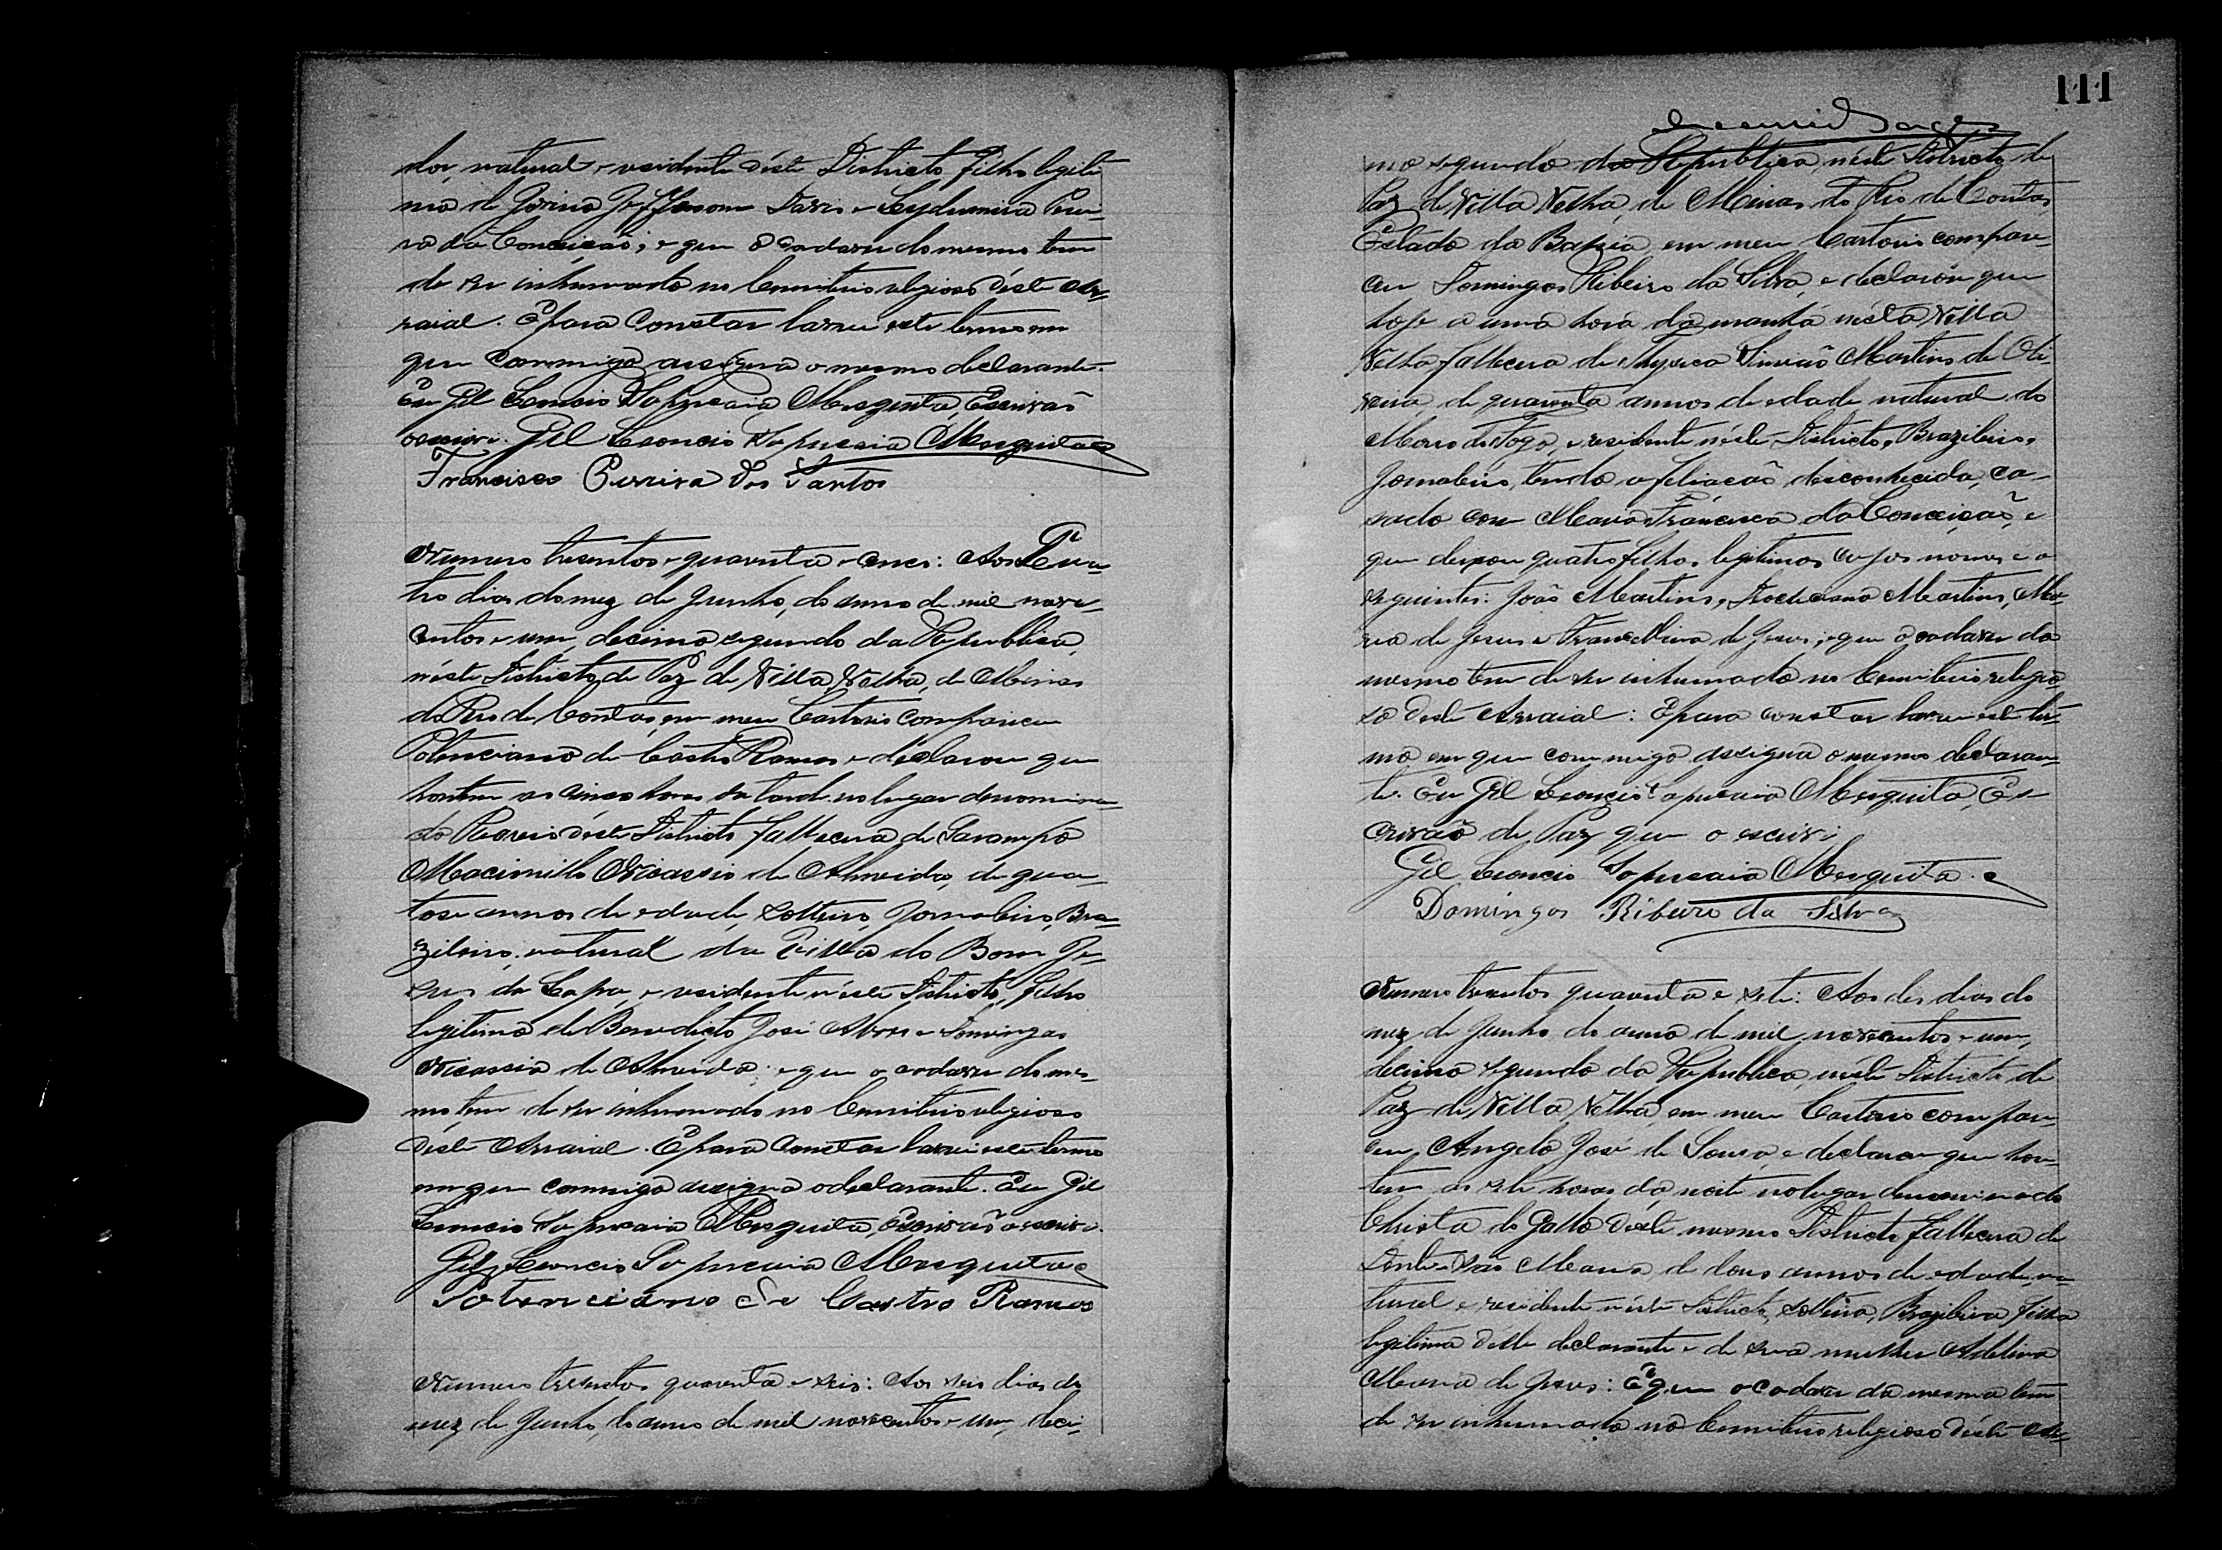 dor, natural e residente déste Districto, filho legiti-
mo de Jovino José Davis e Leydumira Perei-
ra da Conceição; e que o cadaver do mesmo tem
de ser inhumado no Cemiterio religioso déste Ar-
raial. E para constar lavrei este termo em
que commigo assigna o mesmo declarante.
Eu Gil Leoncio Sapucaia Mesquita, Escrivão
o escrivi. Gil Leoncio Sapucaia Mesquita
Francisco Pereira dos Santos
Numero tresentos e quarenta e cinco: Aos Qua-
tro dias do mez de Junho, do anno de mil nove-
centos e um, decimo segundo da Republica,
néste Districto de Paz de Villa Velha, de Minas
do Rio de Contas, em meu Cartorio compareceu
Potenciano de Castro Ramos e declarou que
hontem as cinco horas da tarde no lugar denomina-
do déste Districto fallecera de Sarampo
Nicassio de Almeida, de qua-
tose annos de edade, solteiro, Jornaleiro, Bra-
zileiro, natural da Villa do Bom Je-
sus da Lapa, e residente néste Districto, filho
legitimo de Benedicto José Alves e Domingas
Nicassia de Almeida; e que o cadaver do mes-
mo tem de ser inhumado no Cemiterio religioso
déste Arraial. E para constar lavrei este termo
em que commigo assigna o declarante. Eu Gil
Leoncio Sapucaia Mesquita, Escrivão o escrivi.
Gil Leoncio Sapucaia Mesquita
Potenciano de Castro Ramos
Numero tresentos quarenta e seis: Aos seis dias do
mez de Junho, do anno de mil novecentos e um, deci-
111
mo segundo da Republica, néste Districto de
Paz de Villa Velha, de Minas do Rio de Contas,
Estado da Bahia, em meu Cartorio compare-
ceu Domingos Ribeiro da Silva, e declarou que
hoje a uma hora da manhã nésta Villa
Velha fallecera de Simeão Martins de Oli-
veira, de quarenta annos de edade natural do
Morro do Fogo, e residente néste Districto, Brazileiro,
Jornaleiro, tendo a filiacão desconhecida, ca-
sado com Maria Francisca da Conceição, e
que deixou quatro filhos legitimos cujos nomes é o
seguintes: João Martins, Martins, Ma-
ria de Jesus e de Jesus; e que o cadaver do
mesmo tem de ser inhumado no Cemiterio religio-
so deste Arraial: E para constar lavrei este ter-
mo em que commigo assigna o mesmo declaran-
te. Eu Gil Leoncio Sapucaia Mesquita, Es-
crivão de Paz que o escrivi
Gil Leoncio Sapucaia Mesquita
Domingos Ribeiro da Silva
Numero tresentos quarenta e sete: Aos des dias do
mez de Junho do anno de mil novecentos e um,
decimo segundo da Republica, néste Districto de
Paz de Villa Velha, em meu Cartorio compare-
ceu Angelo José de Souza, e declarou que hon-
tem as sete horas da noite no lugar denominado
do Gallo deste mesmo Districto fallecera de
Maria de dous annos de edade, na-
tural e residente néste Districto, solteira, Brazileira, filha
legitima délle declarante e de sua mulher Adelina
Maria de Jesus: E que o cadaver da mesma tem
de ser inhumado no Cemiterio religioso déste Ar-